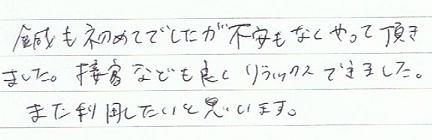 鍼も初めてでしたが不安もなくやって頂き
ました。接客なども良くリラックスできました。
また利用したいと思います。